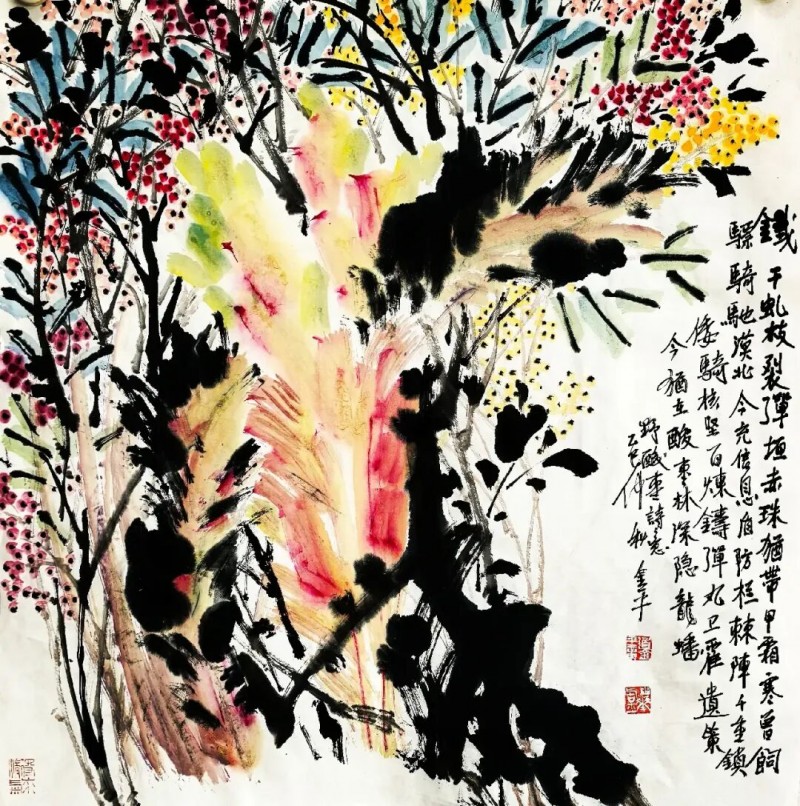 鐵干虬枝裂彈垣赤珠猶帶甲霜寒曾飼
驃騎馳漠北今充信息盾防栏棘陣千重鎖
倭騎核坚百煉鑄彈丸卫疆遺策
今猶在酸枣林深隐龍蟠
野酸枣詩意
乙巳仲秋金平